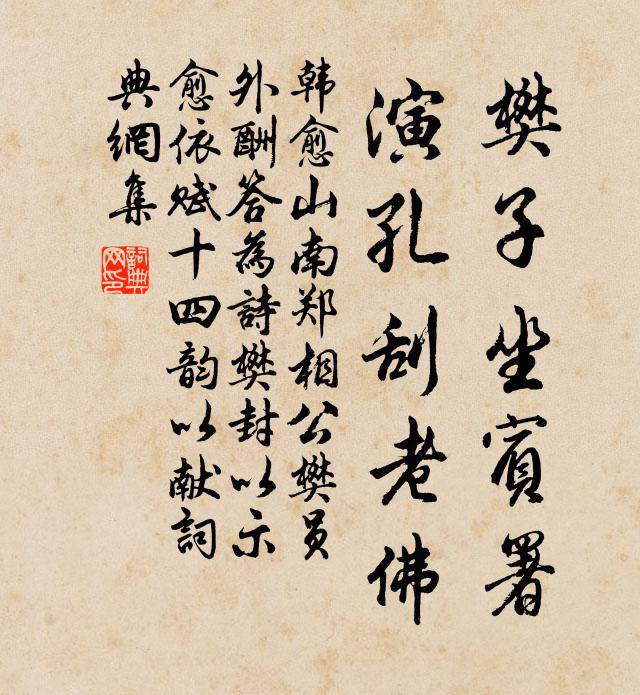 樊子坐賓署
演孔刮老佛
韩愈山南郑相公樊员
外酬答為詩樊封以示
愈依赋十四韵以献詞
典網集
詞典
网印